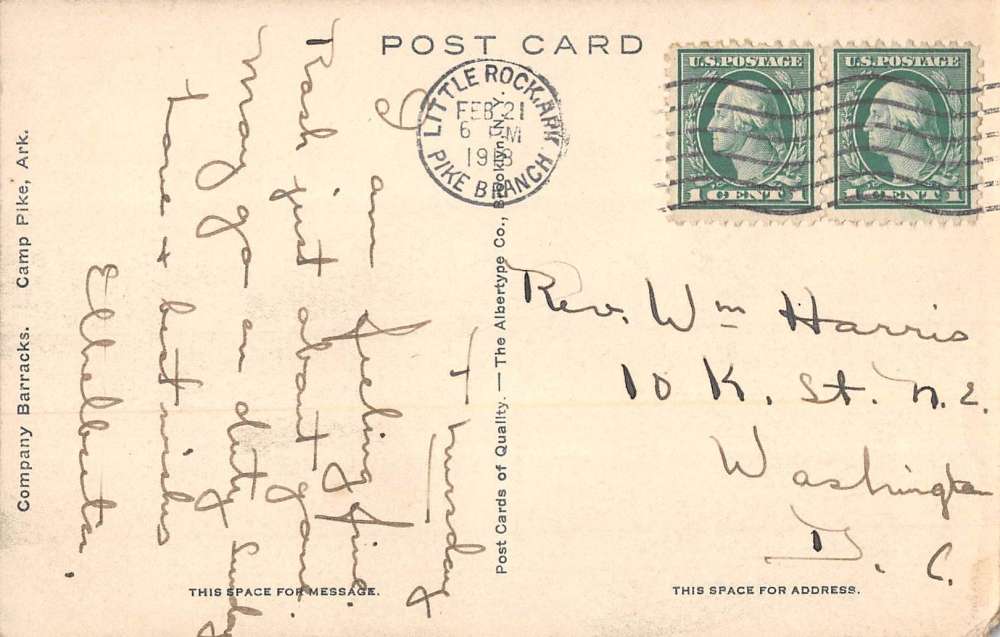 POST CARD
LITTLE ROCK, ARK
FEB 21
6 PM
1918
PIKE BRANCH
U.S. POSTAGE
1 CENT 1
U.S. POSTAGE
1 CENT 1
Company Barracks. Camp Pike, Ark.
Thursday
I am feeling fine
Rash just about gone
May go on duty Sunday
Love & best wishes
Post Cards of Quality. — The Albertype Co., Brooklyn, N.Y.
Rev. Wm Harris
10 K. St. N.E.
Washington
D. C.
THIS SPACE FOR MESSAGE.
THIS SPACE FOR ADDRESS.